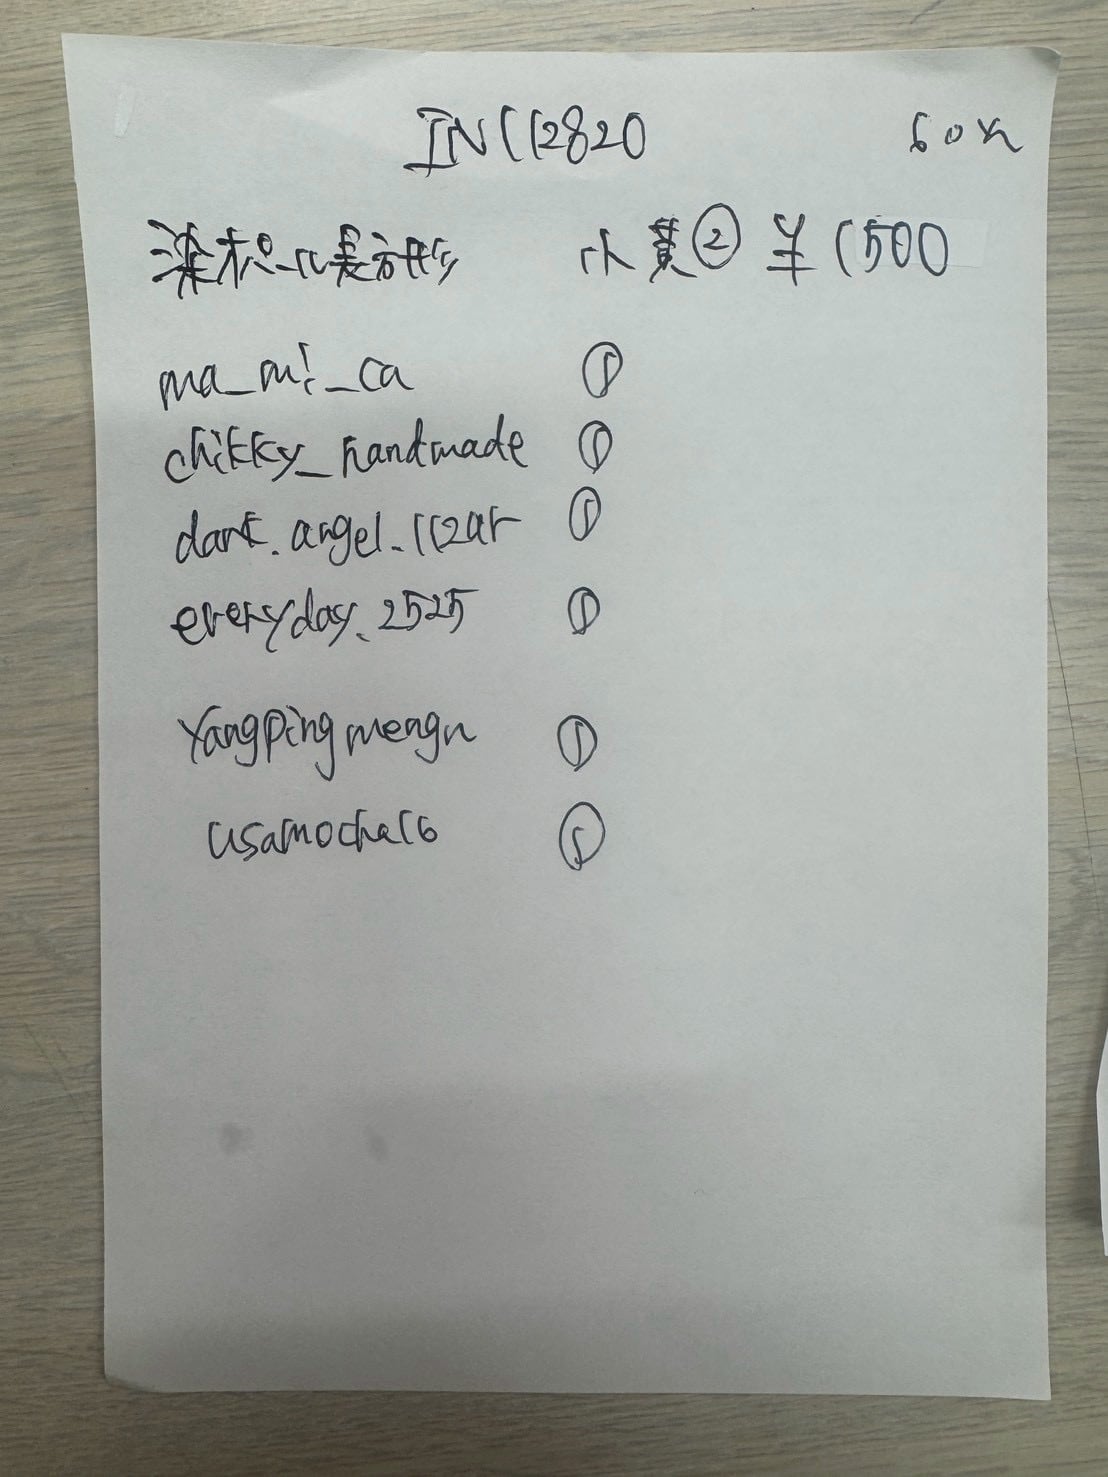 INC112820 60x
小黄② ¥1500
ma_mi_ca ①
chikky_handmade ①
dark.angel.112ar ①
everyday.2525 ①
Yangpingmengn ①
usamocha16 ①